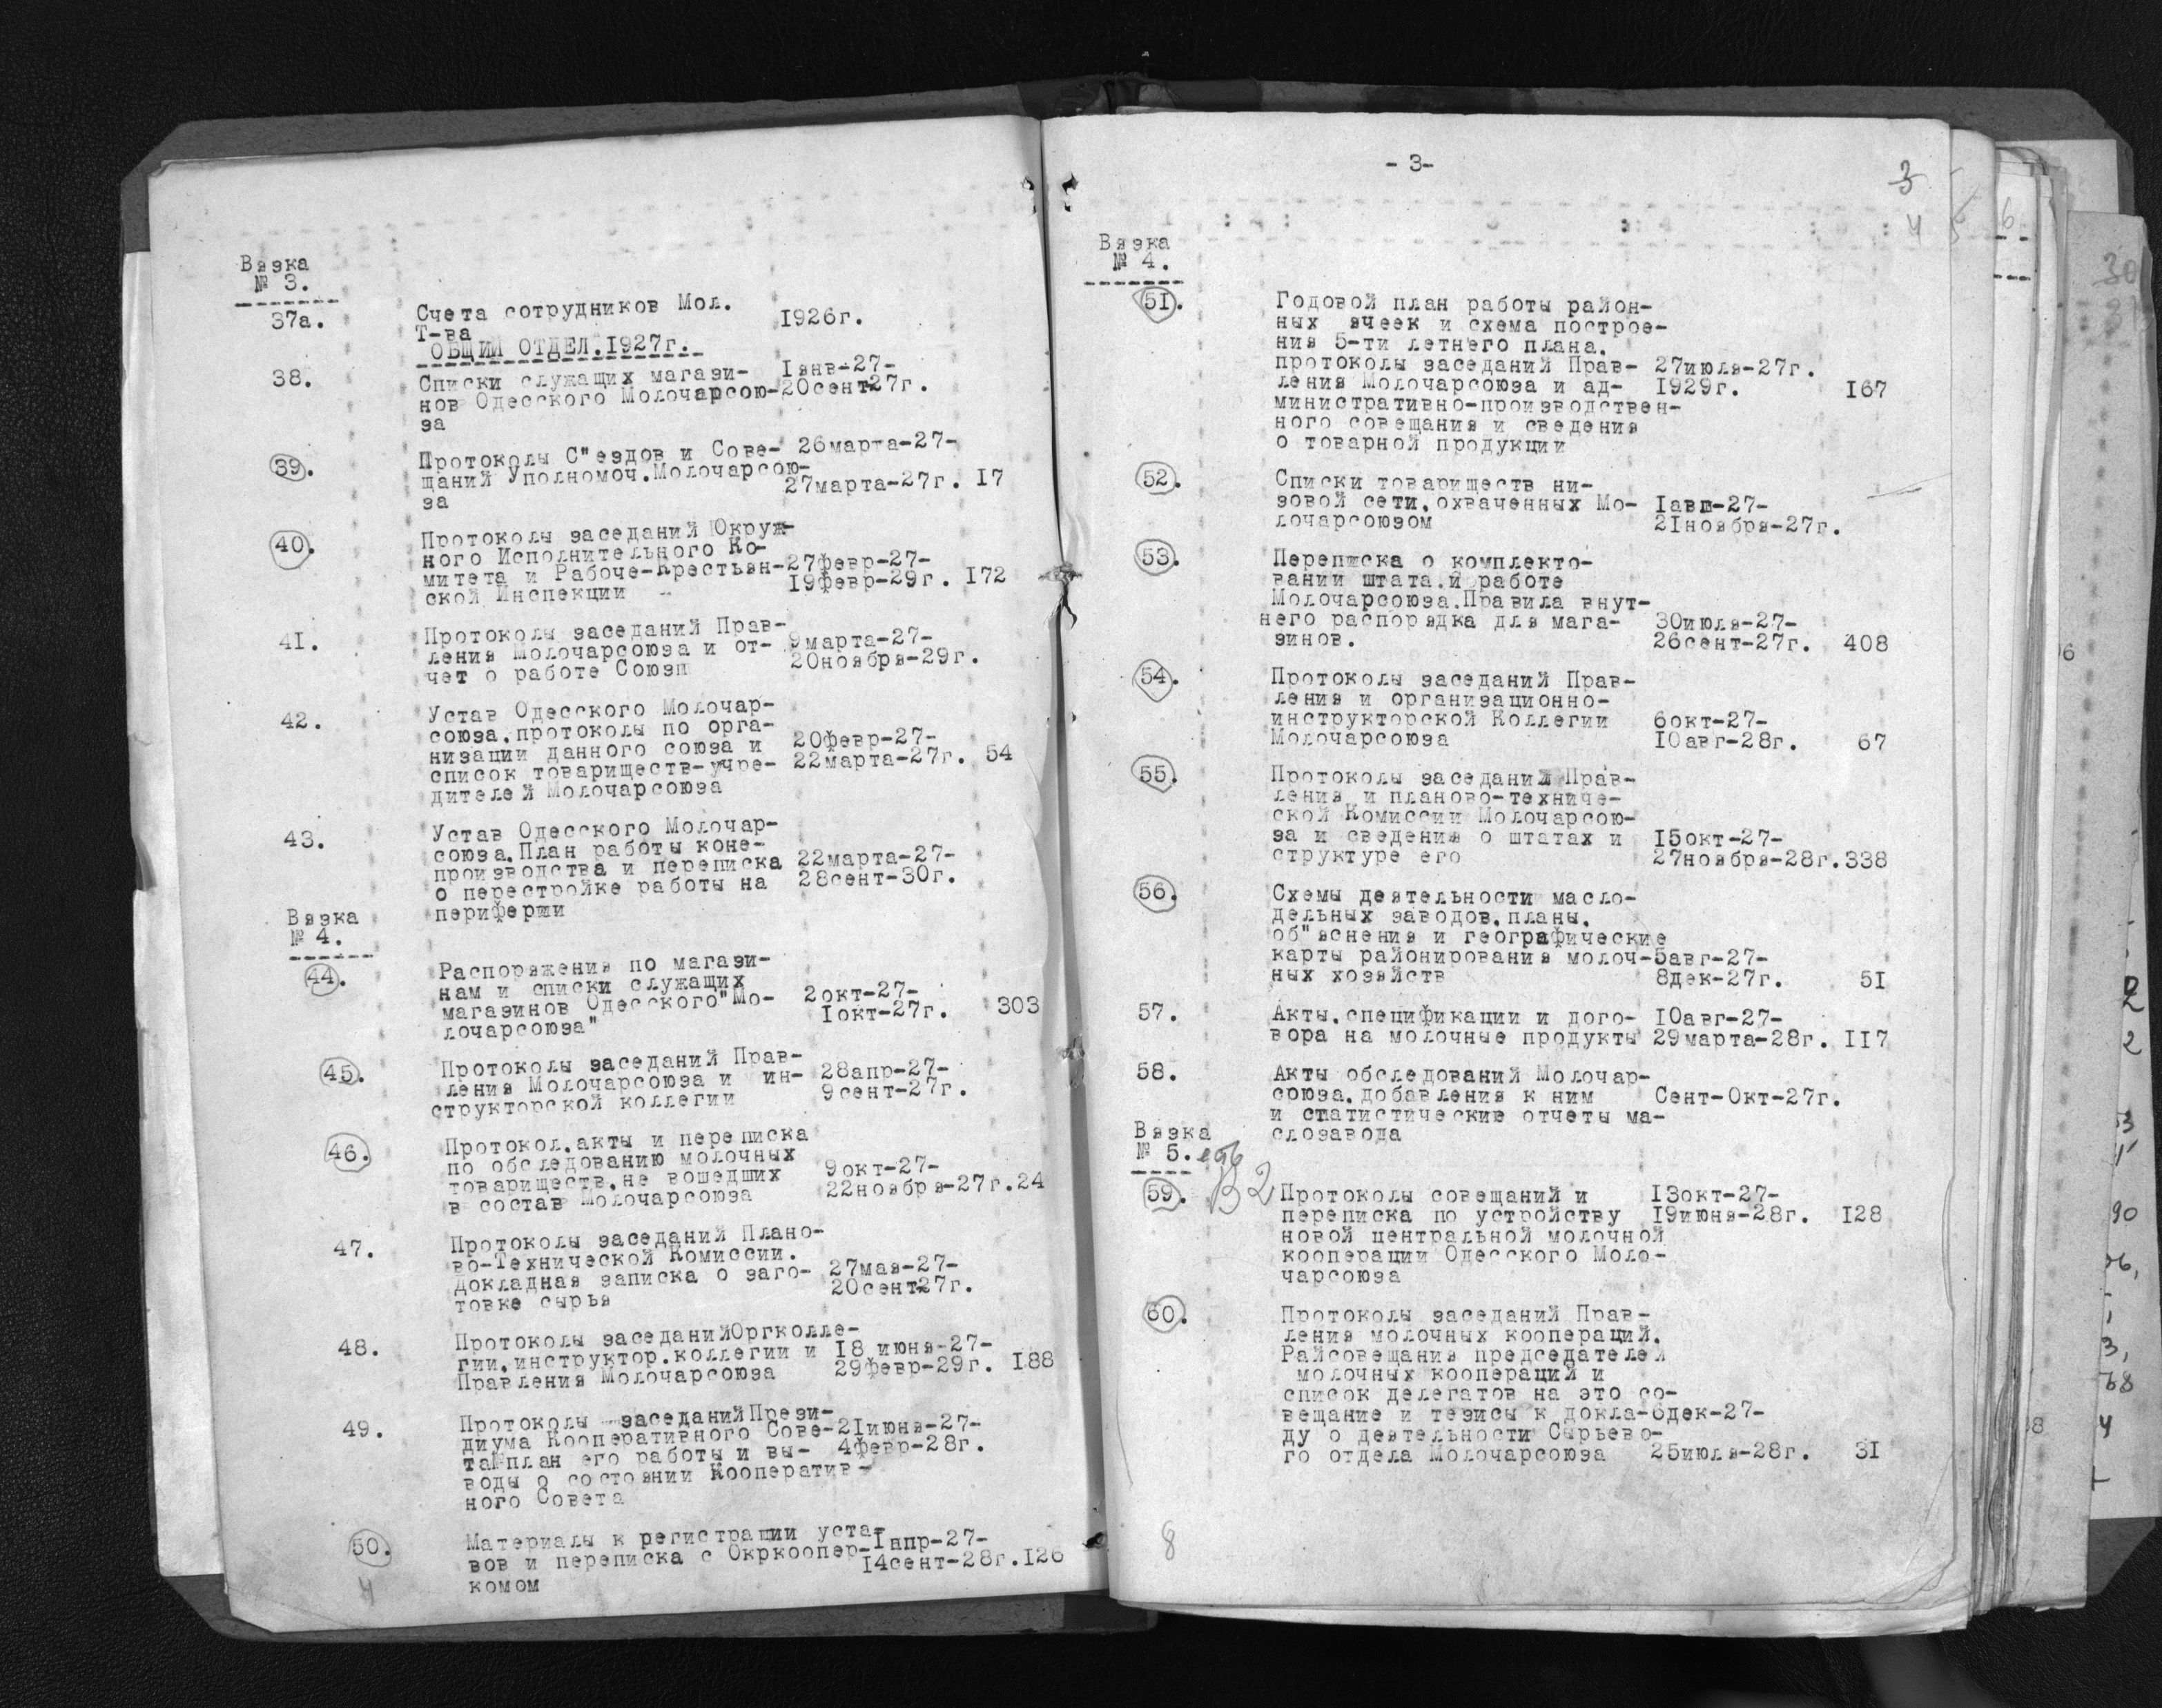 Вязка
№ 3.
37а. Счета сотрудников Мол. 1926г.
Т-ва
ОБЩИЙ ОТДЕЛ.1927г.
38. Списки служащих магази- 1янв-27-
нов Одесского Молочарсою-20сент-27г.
за
39. Протоколы С"ездов и Сове- 26марта-27-
щаний Уполномоч.Молочарсою-
за 27марта-27г. 17
40. Протоколы заседаний Юкруж-
ного Исполнительного Ко-
митета и Рабоче-Крестьян-27февр-27-
ской Инспекции 19февр-29г. 172
41. Протоколы заседаний Прав-
ления Молочарсоюза и от- 9марта-27-
чет о работе Союзи 20ноября-29г.
42. Устав Одесского Молочар-
союза.протоколы по орга-
низации данного союза и 20февр-27-
список товариществ-учре- 22марта-27г. 54
дителей Молочарсоюза
43. Устав Одесского Молочар-
союза.План работы коне-
производства и переписка 22марта-27-
о перестройке работы на 28сент-30г.
периферии
Вязка
№ 4.
44. Распоряжения по магази-
нам и списки служащих
магазинов Одесского"Мо- 2окт-27-
лочарсоюза" 1окт-27г. 303
45. Протоколы заседаний Прав-
ления Молочарсоюза и ин- 28апр-27-
структорской коллегии 9сент-27г.
46. Протокол.акты и переписка
по обследованию молочных
товариществ.не вошедших 9окт-27-
в состав Молочарсоюза 22ноября-27г.24
47. Протоколы заседаний Плано-
во-Технической Комиссии.
Докладная записка о заго- 27мая-27-
товке сырья 20сент27г.
48. Протоколы заседанийОргколле-
гии.инструктор.коллегии и 18 июня-27-
Правления Молочарсоюза 29февр-29г. 188
49. Протоколы заседанийПрези-
диума Кооперативного Сове-21июня-27-
та план его работы и вы- 4февр-28г.
воды о состоянии Кооператив-
ного Совета
50. Материалы к регистрации уста-1апр-27-
вов и переписка с Окркоопер-14сент-28г.126
комом
4
-3-
3
4 5
Вязка
№ 4.
51. Годовой план работы район-
ных ячеек и схема построе-
ния 5-ти летнего плана.
протоколы заседаний Прав- 27июля-27г.
ления Молочарсоюза и ад- 1929г. 167
министративно-производствен-
ного совещания и сведения
о товарной продукции
52. Списки товариществ ни-
зовой сети.охваченных Мо- 1авг-27-
лочарсоюзом 21ноября-27г.
53. Переписка о комплекто-
вании штата.и работе
Молочарсоюза.Правила внут-
него распорядка для мага- 30июля-27-
зинов. 26сент-27г. 408
54. Протоколы заседаний Прав-
ления и организационно-
инструкторской Коллегии 6окт-27-
Молочарсоюза 10авг-28г. 67
55. Протоколы заседаний Прав-
ления и планово-техниче-
ской Комиссии Молочарсою-
за и сведения о штатах и 15окт-27-
структуре его 27ноября-28г.338
56. Схемы деятельности масло-
дельных заводов.планы.
об"яснения и географические
карты районирования молоч-5авг-27-
ных хозяйств 8дек-27г. 51
57. Акты.спецификации и дого- 10авг-27-
вора на молочные продукты 29марта-28г. 117
58. Акты обследований Молочар-
союза.добавления к ним Сент-Окт-27г.
и статистические отчеты ма-
слозавода
Вязка
№ 5.
59. Протоколы совещаний и 13окт-27-
переписка по устройству 19июня-28г. 128
новой центральной молочной
кооперации Одесского Моло-
чарсоюза
60. Протоколы заседаний Прав-
ления молочных коопераций.
Райсовещания председателей
молочных коопераций и
список делегатов на это со-
вещание и тезисы к докла-6дек-27-
ду о деятельности Сырьево-
го отдела Молочарсоюза 25июля-28г. 31
8